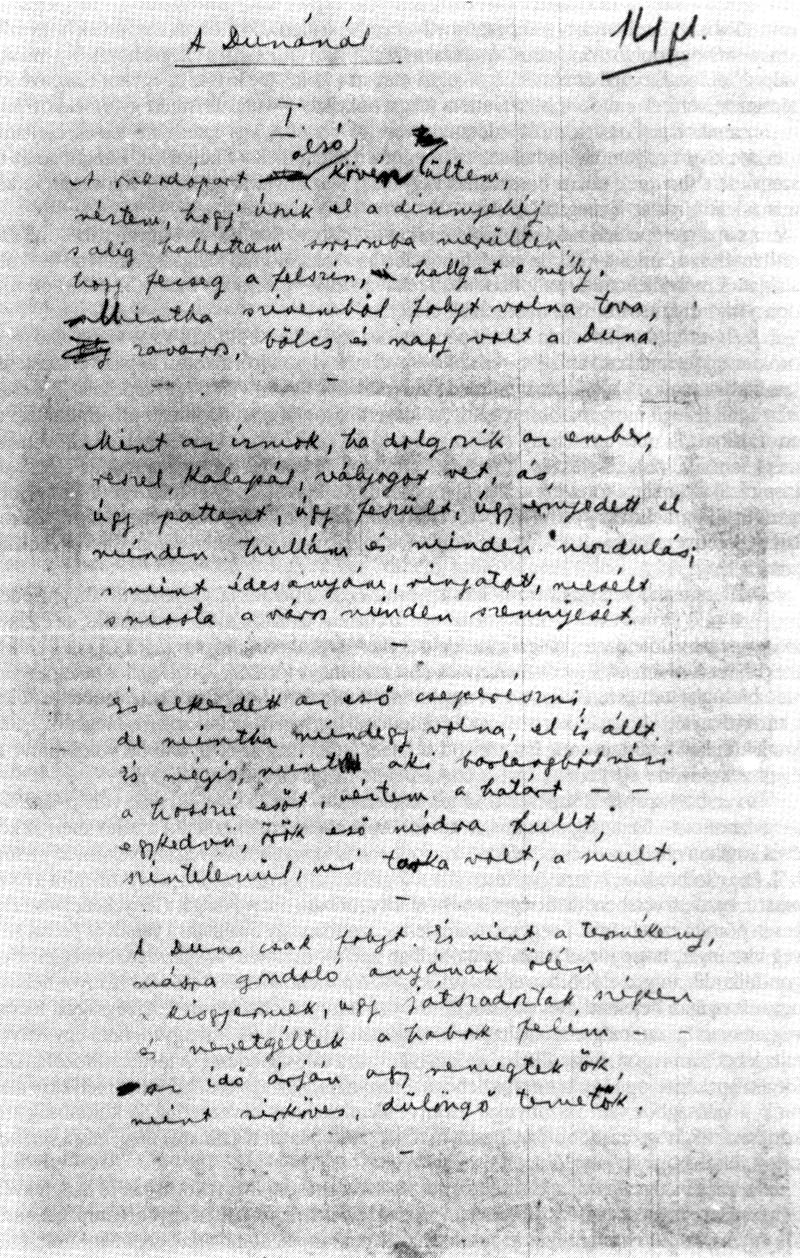 A Dunánál
I.
alsó
A rakodópart kövén ültem,
néztem, hogy úszik el a dinnyehéj
Alig hallottam sorsomba merülten
hogy fecseg a felszin, hallgat a mély.
Mintha szivemből folyt volna tova,
zavaros, bölcs és nagy volt a Duna.
Mint az izmok, ha dolgozik az ember,
reszel, kalapál, vályogot vet, ás
úgy pattant, úgy feszült, úgy ernyedett el
minden hullám és minden mozdulás;
s mint édesanyám, ringatott, mesélt
s mosta a város minden szennyesét.
És elkezdett az eső cseperészni,
de mintha mindegy volna, el is állt.
és mégis, mint aki barlangból nézi
a hosszú esőt néztem a határt — —
egykedvü, örök eső módra hullt,
szintelenül, mi tarka volt, a mult.
A Duna csak folyt. És mint a termékeny,
másra gondoló anyának ölén
a kisgyermek úgy játszadoztak szépen
és nevetgéltek a habok felém
az idő árján úgy remegtek ők
mint sirköves, dülöngő temetők